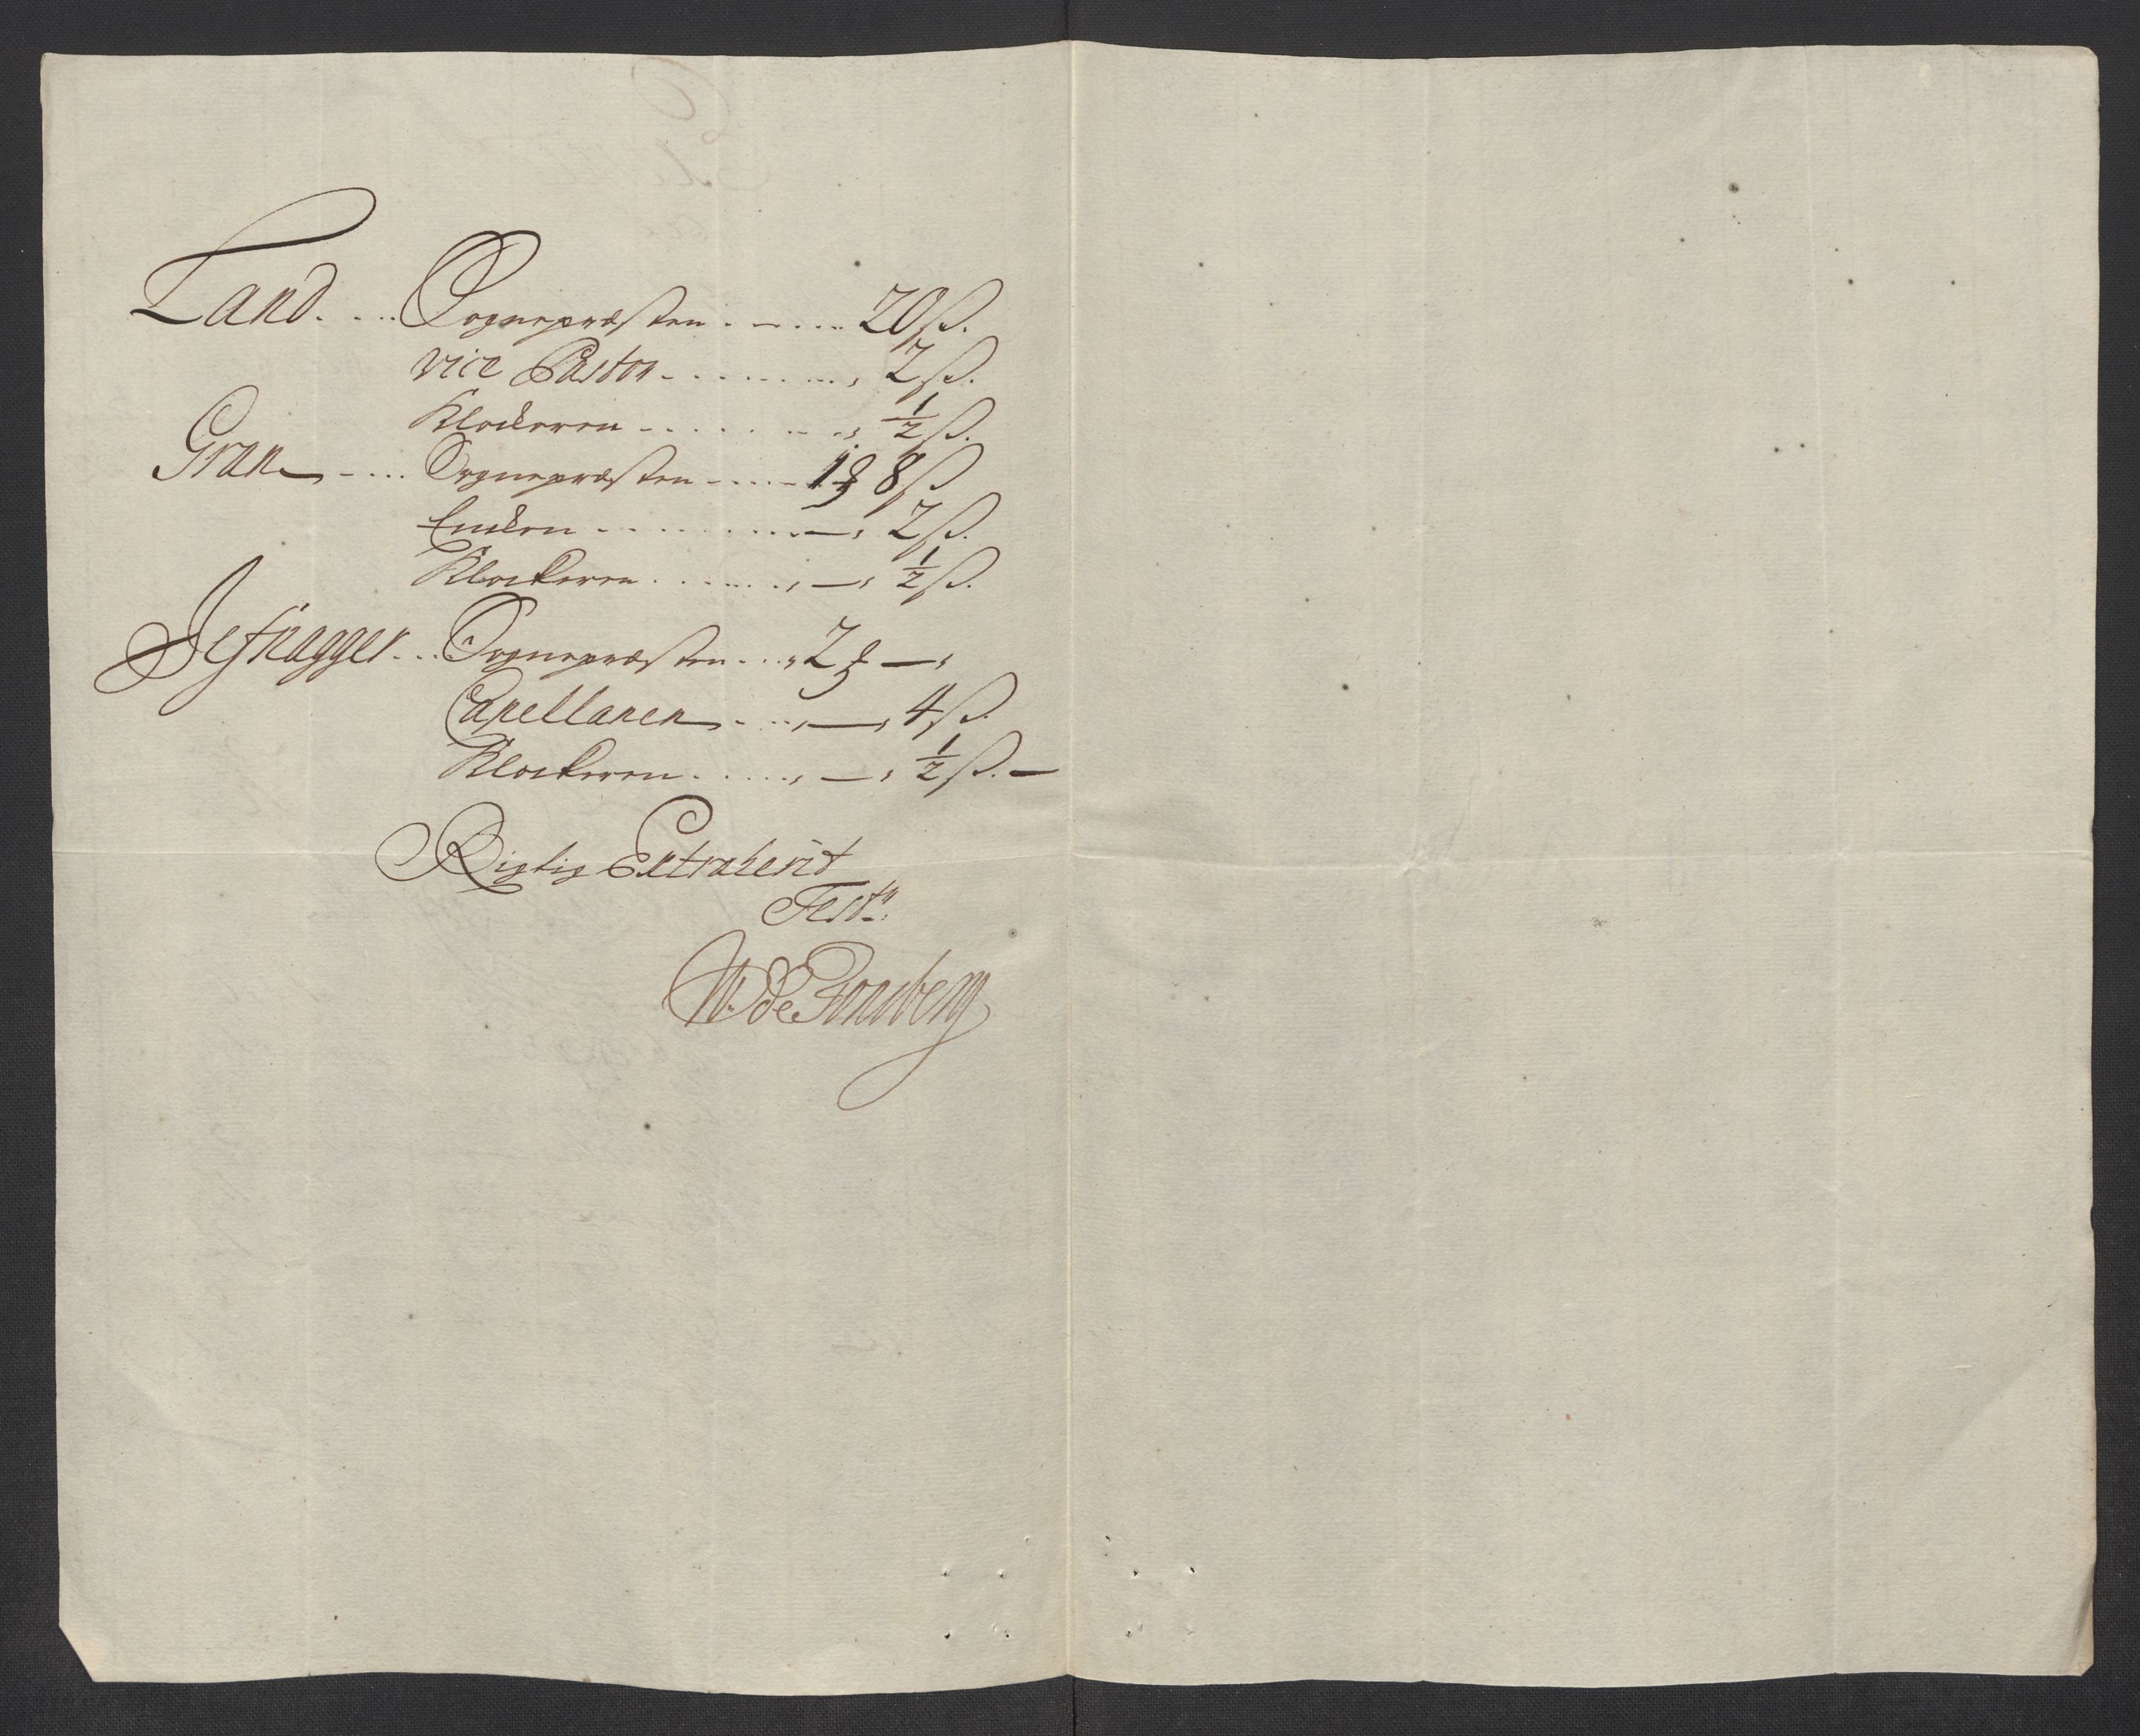 Land . . . . Sognepræsten . - . . . . 20 ß.
vice Pastor - . . . . . . . . , 2 ß.
Klockeren - - . . . . - - . , ½ ß.
Gran - . . . Sognepræsten - . . . - 1 ₰ 8 ß
Encken - - . . . . . . . — , 2 ß.
Klockeren . . . . . . , — , ½ ß.
Jefnagger . . . Sognepræsten . . . , 2 ₰ — ,
Capellanen - . . . , — , 4 ß.
Klockeren . . . . . , — , ½ ß. —
Rigtig Extraherit
Test:
W. de Tonsberg